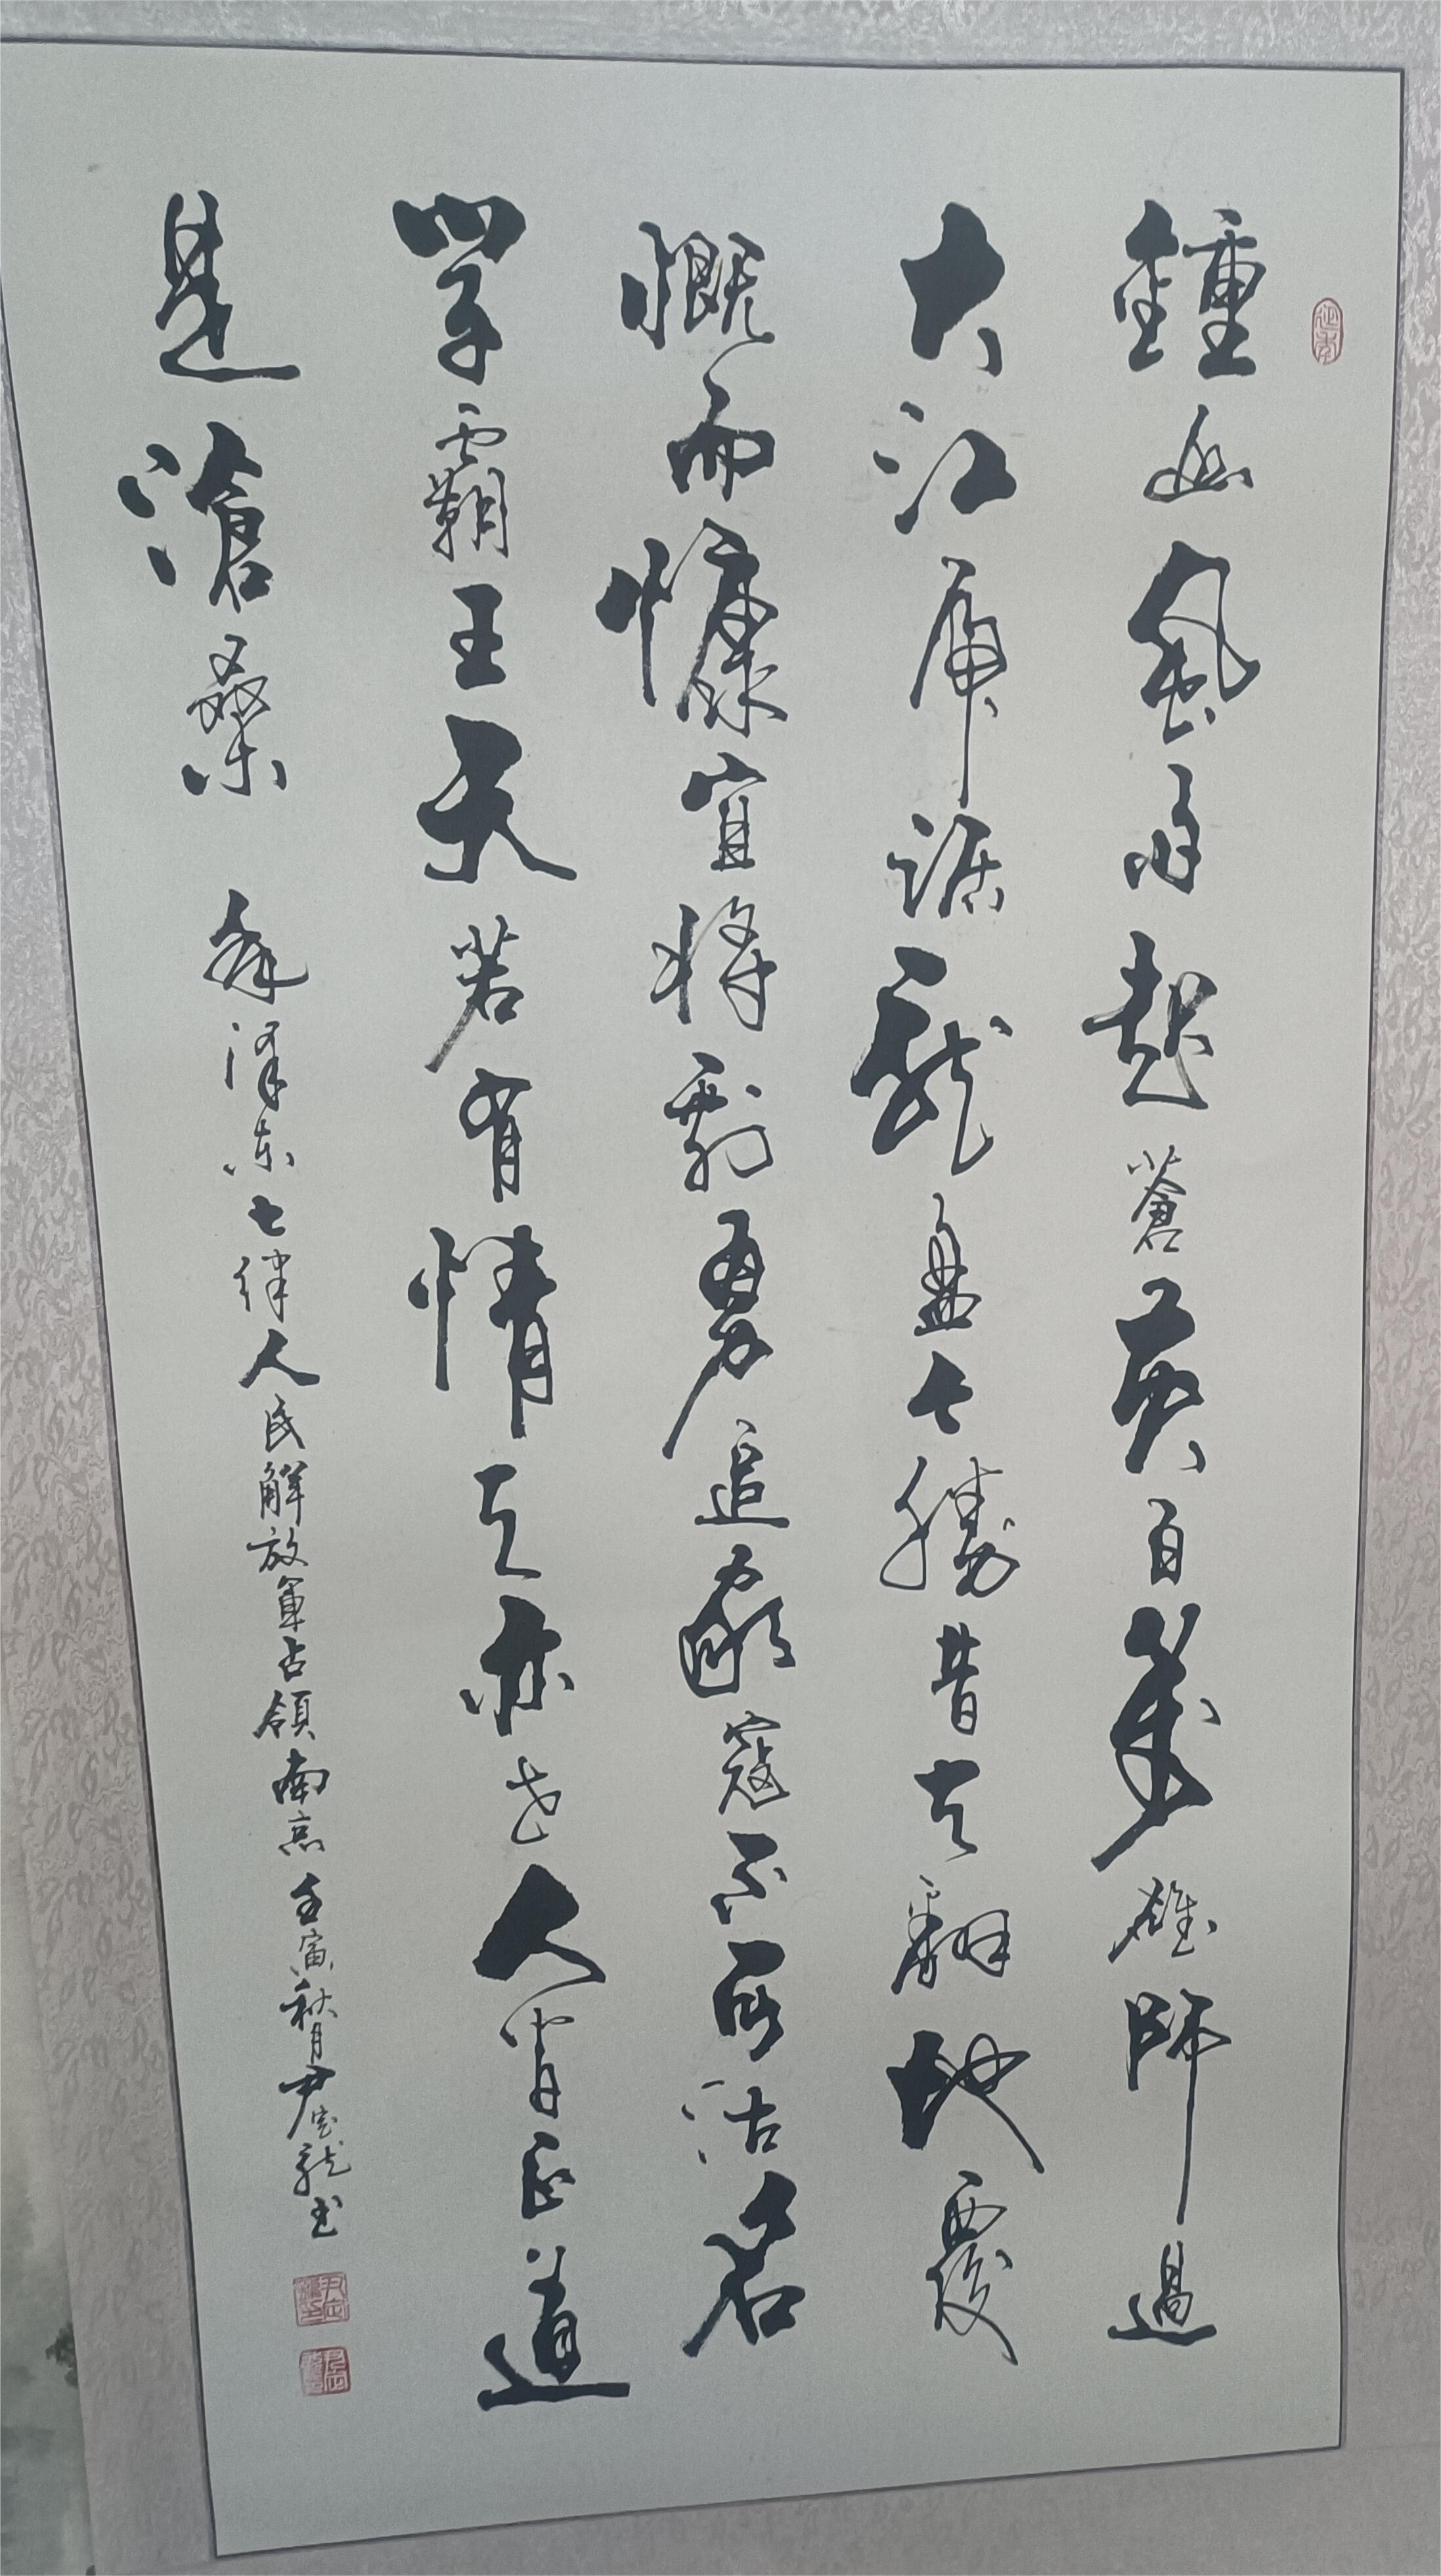 鍾山風雨起蒼黃百萬雄師過
大江虎踞龍盤今勝昔天翻地覆
慨而慷宜將剩勇追窮寇不可沽名
學霸王天若有情天亦老人間正道
是滄桑 毛澤东七律人民解放軍占領南京壬寅秋月尹宝龍书